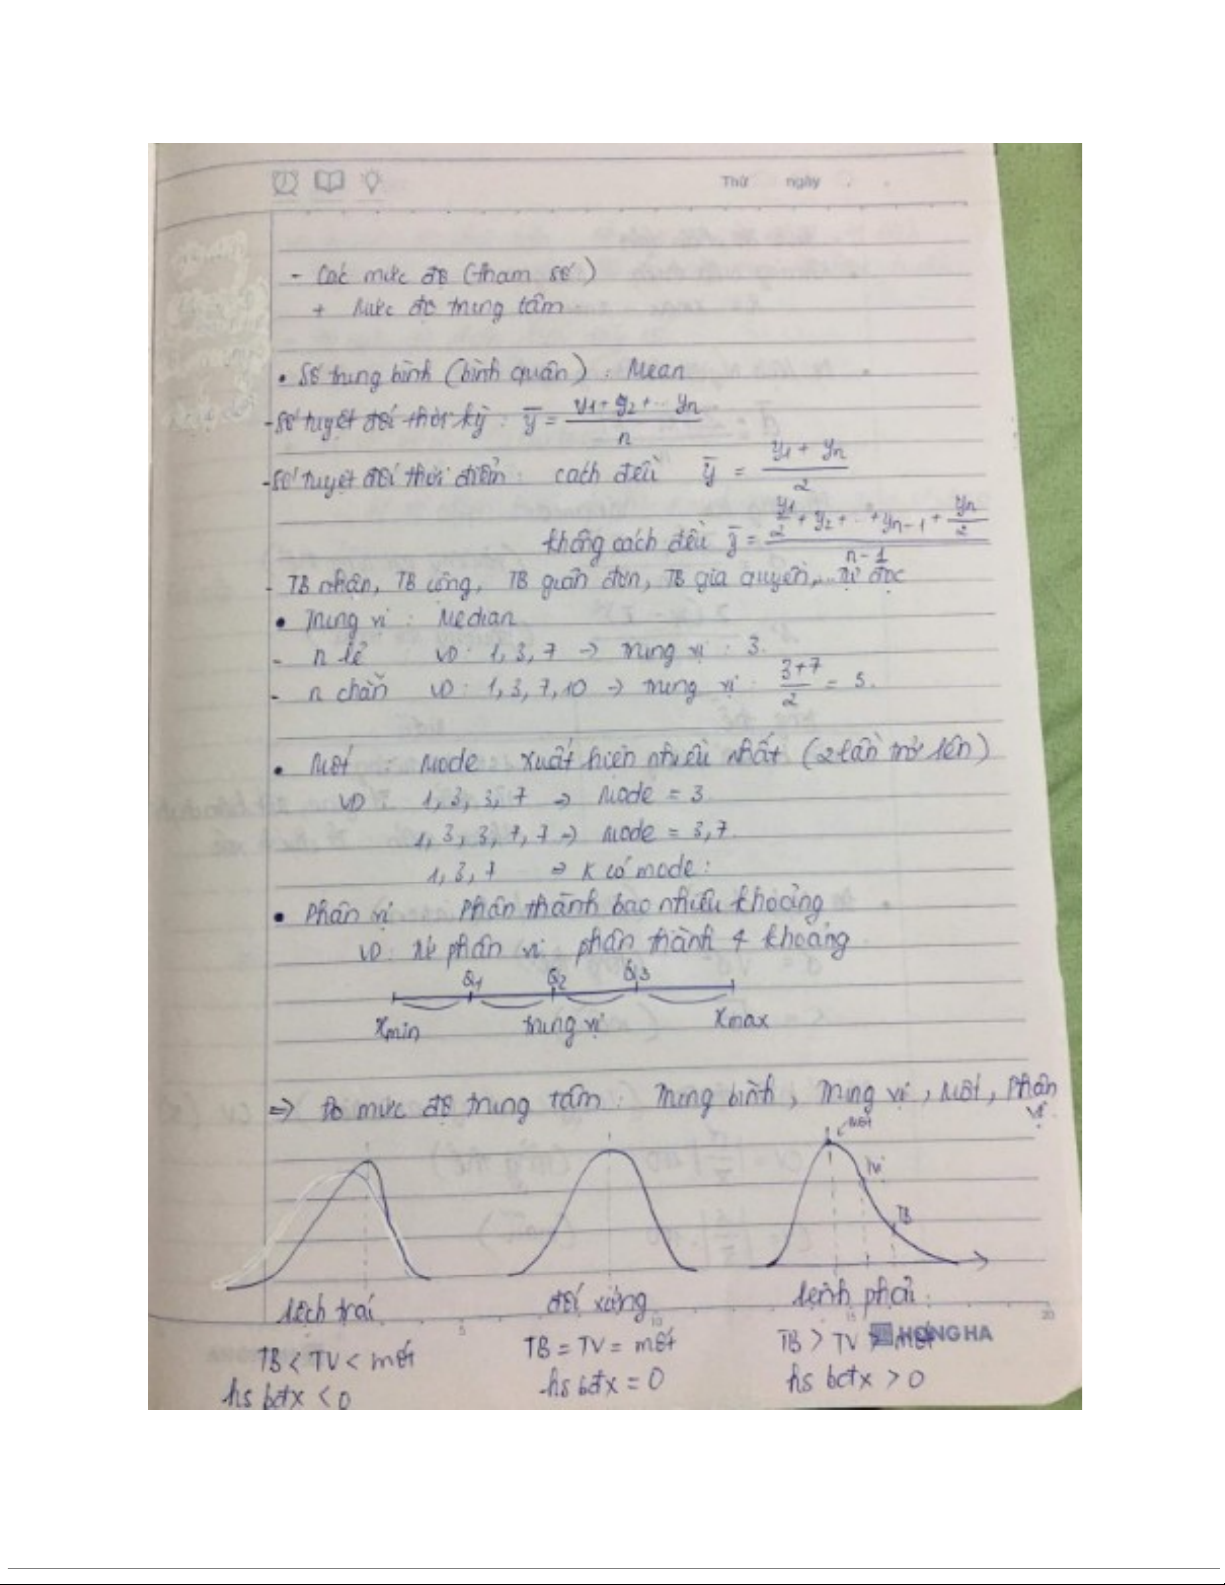 Thứ ngày
- Các mức độ (tham số)
+ Mức độ trung tâm
• Số trung bình (bình quân) : Mean
- Số tuyệt đối thời kỳ : ȳ = (y1 + y2 + ... yn) / n
- Số tuyệt đối thời điểm : cách đều ȳ = (y1 + yn) / 2
không cách đều ȳ = (y1/2 + y2 + ... + yn-1 + yn/2) / (n-1)
- TB nhân, TB cộng, TB giản đơn, TB gia quyền,... tự đọc
• Trung vị : Median
- n lẻ VD : 1, 3, 7 → trung vị : 3.
- n chẵn VD : 1, 3, 7, 10 → trung vị : (3+7)/2 = 5.
• Mốt : Mode xuất hiện nhiều nhất (2 lần trở lên)
VD : 1, 3, 3, 7 ⇒ Mode = 3
1, 3, 3, 7, 7 → Mode = 3, 7.
1, 3, 7 ⇒ K có mode :
• Phân vị phân thành bao nhiêu khoảng
VD : Tứ phân vị phân thành 4 khoảng
Q1 Q2 Q3
Xmin trung vị Xmax
⇒ Đo mức độ trung tâm : Trung bình, Trung vị, Mốt, Phân vị
Mốt
TV
TB
lệch trái đối xứng lệnh phải
5 10 15 20
HONG HA
TB < TV < mốt TB = TV = mốt TB > TV > mốt
hs bđx < 0 hs bđx = 0 hs bđx > 0